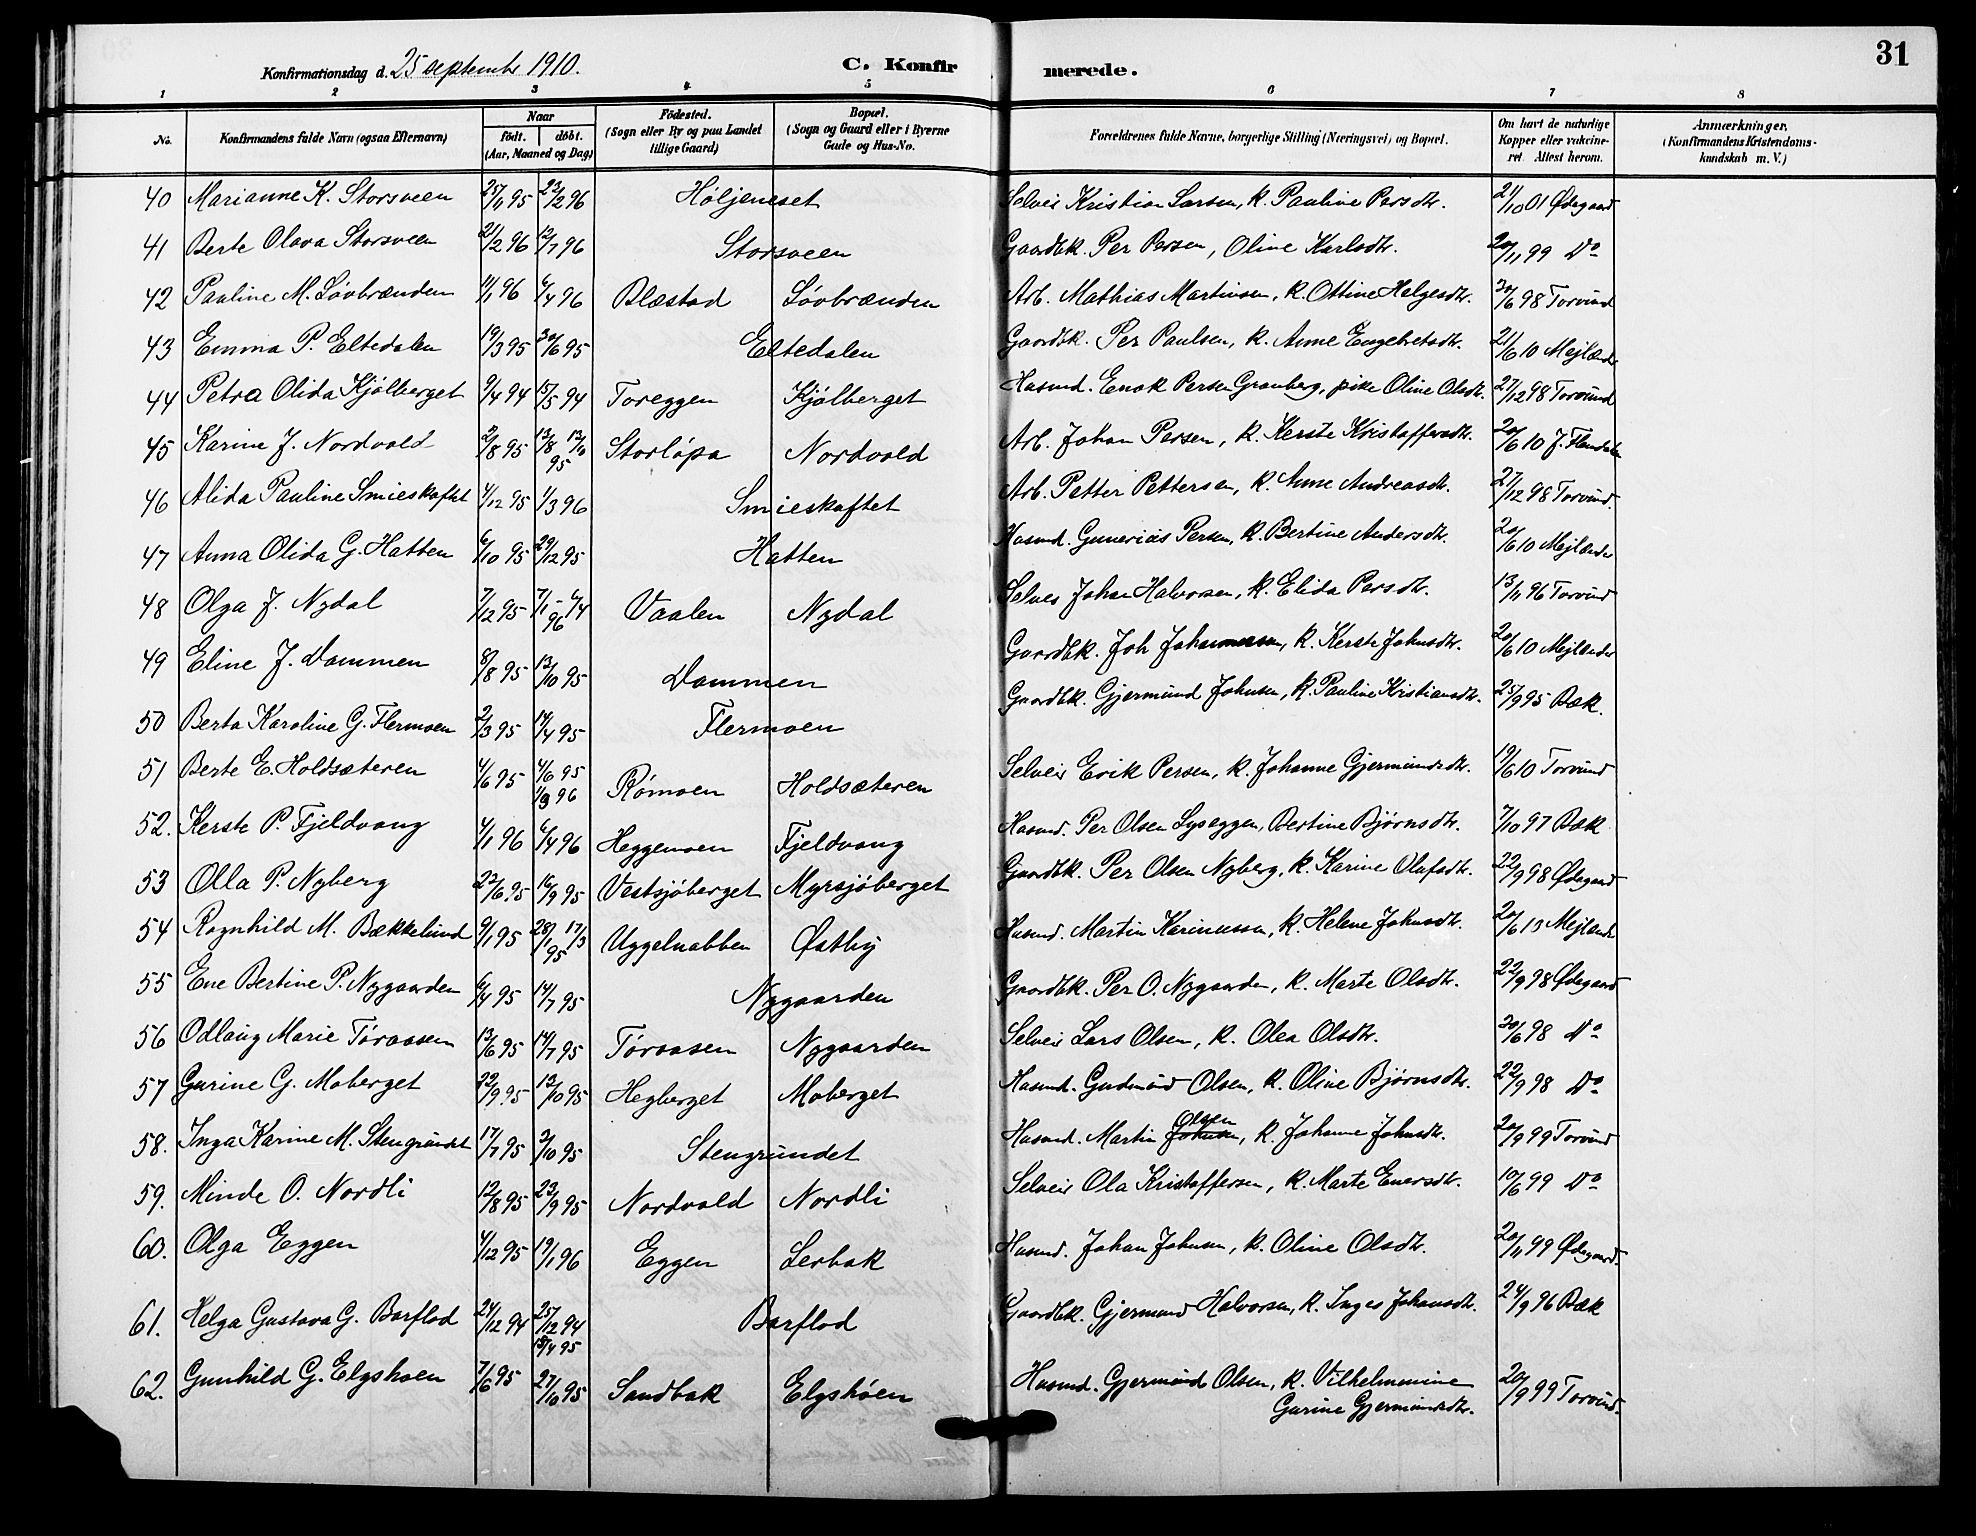 31
Konfirmationsdag d. 25 september 1910.
C. Konfirmerede.
1 2 3 4 5 6 7 8
No.
Konfirmandens fulde Navn (ogsaa Efternavn)
Naar
født. døbt.
(Aar, Maaned og Dag)
Fødested.
(Sogn eller By og paa Landet
tillige Gaard)
Bopæl.
(Sogn og Gaard eller i Byerne
Gade og Hus-No.
Forældrenes fulde Navne, borgerlige Stilling (Næringsvei) og Bopæl.
Om havt de naturlige
Kopper eller vakcine-
ret. Attest herom.
Anmærkninger.
(Konfirmandens Kristendoms-
kundskab m. V.)
40 Marianne K. Storsveen 25/11 95 23/2 96 Høljeneset Selveir Kristian Larsen, k. Pauline Persdtr. 21/10 01 Ødegaard
41 Berte Olava Storsveen 21/2 96 12/7 96 Storsveen Gaardbk. Per Persen, Oline Karlsdtr. 20/11 99 Do
42 Pauline M. Løvbrænden 11/1 96 6/4 96 Blæstad Løvbrænden Arb. Mathias Martinsen, k. Ottine Helgesdtr. 30/6 98 Torvund
43 Emma P. Eltedalen 19/3 95 30/6 95 Eltedalen Gaardbk. Per Paulsen, k. Anne Engebretsdtr. 21/6 10 Mejlænder
44 Petra Olida Kjølberget 9/4 94 15/5 94 Toreggen Kjølberget Husmd. Enok Persen Granberg, pike Oline Olsdtr. 27/12 98 Torvund
45 Karine J. Nordvald 2/8 95 13/8 13/10 95 Storløpa Nordvald Arb. Johan Persen, k. Kerste Kristoffersdtr. 20/6 10 J. Flendalen
46 Alida Pauline Smieskaftet 4/12 95 1/3 96 Smieskaftet Arb. Petter Pettersen, k. Anne Andreasdtr. 27/12 98 Torvund.
47 Anna Olida G. Hatten 6/10 95 29/12 95 Hatten Husmd. Gunerius Persen, k. Bertine Andersdtr. 20/6 10 Mejlænder
48 Olga J. Nydal 7/12 95 7/1 - 6/4 96 Vaalen Nydal Selveir Johan Halvorsen, k. Elida Persdtr. 13/11 96 Torvund
49 Eline J. Dammen 8/8 95 13/10 95 Dammen Gaardbk. Joh Johannessen, k. Kerste Johnsdtr. 20/6 10 Mejlænder
50 Berta Karoline G. Flermoen 2/3 95 14/4 95 Flermoen Gaardbk. Gjermund Johnsen, k. Pauline Kristiansdtr. 25/9 95 Bæk.
51 Berte E. Holdsæteren 4/6 95 4/6 95 1/3 96 Rømoen Holdsæteren Selveir Erik Persen, k. Johanne Gjermundsdtr. 19/6 10 Torvund
52. Kerste P. Fjeldvang 4/1 96 6/4 96 Heggemoen Fjeldvang Husmd. Per Olsen Lyseggen, Bertine Bjørnsdtr. 7/10 97 Bæk
53 Olla P. Nyberg 22/6 95 16/9 95 Vestsjøberget Myrsjøberget Gaardbk. Per Olsen Nyberg, k. Karine Olafsdtr. 22/9 98 Ødegaard
54 Ragnhild M. Bækkelund 9/1 95 28/1 17/3 95 Uggelnabben Østby Husmd. Martin Karinussen, k. Helene Johnsdtr. 20/6 10 Mejlænder
55 Ene Bertine P. Nygaarden 6/4 95 14/7 95 Nygaarden Gaardbk. Per O. Nygaarden, k. Marte Olsdtr. 22/9 98 Ødegaard
56 Odlaug Marie Tøraasen 13/6 95 14/7 95 Tøraasen Nygaarden Selveir Lars Olsen, k. Olea Olsdtr. 30/6 98 Do
57 Gurine G. Moberget 22/9 95 13/10 95 Hegberget Moberget Husmd. Gudmund Olsen, k. Oline Bjørnsdtr. 22/9 98 Do
58. Inga Karine M. Stengrundet 17/7 95 3/10 95 Stengrundet Husmd. Martin Johnsen Olsen, k. Johanne Johnsdtr. 20/9 99 Torvund
59. Minde O. Nordli 12/8 95 23/9 95 Nordvald Nordli Selveir Ola Kristoffersen, k. Marte Enersdtr. 10/6 99 Do
60. Olga Eggen 4/12 95 19/1 96 Eggen Lerbak Husmd. Johan Johnsen, k. Oline Olsdtr. 20/11 99 Ødegaard.
61. Helga Gustava G. Barflod 24/12 94 25/12 94 15/4 95 Barflod Gaardbk. Gjermund Halvorsen, k. Inges Johansdtr. 24/9 96 Bæk
62. Gunhild G. Elgshøen 7/6 95 27/10 95 Sandbak Elgshøen Husmd. Gjermund Olsen, k. Vilhelmmine
Gurine Gjermundsdtr. 20/9 99 Torvund.